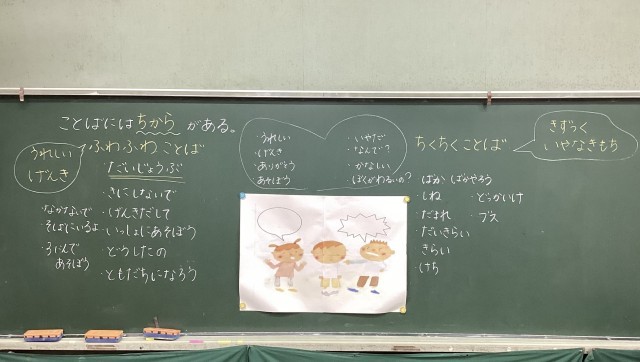 ことばにはちからがある。
うれしい
げんき
ふわふわことば
だいじょうぶ
きにしないで
・げんきだして
・いっしょにあそぼう
・どうしたの
・ともだちになろう
・なかないで
・そばにいるよ
あそぼう
・うれしい
・げんき
・ありがとう
・あそぼう
・いやだ
・なんで?
・かなしい
・ぼくがわるいの?
ちくちくことば
きずつく
いやなきもち
・ばか ばかやろう
・しね ・どっかいけ
・だまれ ・ブス
・だいきらい
きらい
・けち